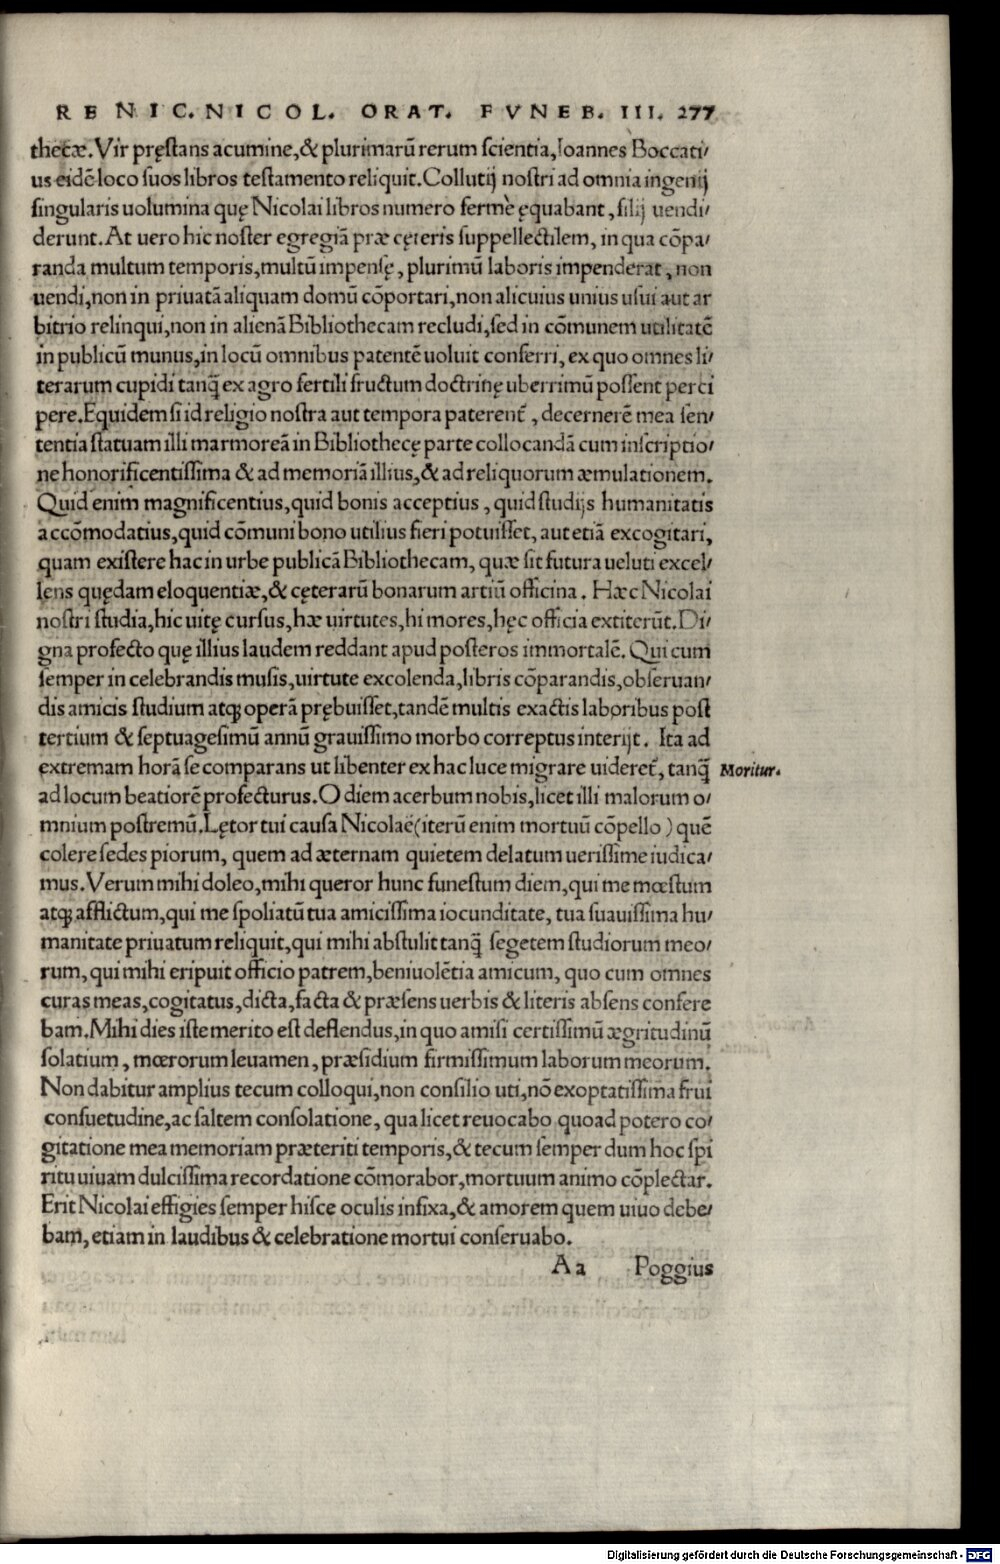 RE NIC. NICOL. ORAT. FVNEB. III. 277
thecæ. Vir pręstans acumine, & plurimarũ rerum scientia, Ioannes Boccati/
us eidẽ loco suos libros testamento reliquit. Collutij nostri ad omnia ingenij
singularis uolumina quę Nicolai libros numero fermè ęquabant, filij uendi/
derunt. At uero hic noster egregiã præ cęteris suppellectilem, in qua cõpa/
randa multum temporis, multũ impensę, plurimũ laboris impenderat, non
uendi, non in priuatã aliquam domũ cõportari, non alicuius unius usui aut ar
bitrio relinqui, non in alienã Bibliothecam recludi, sed in cõmunem utilitatẽ
in publicũ munus, in locũ omnibus patentẽ uoluit conferri, ex quo omnes li/
terarum cupidi tanq̃ ex agro fertili fructum doctrinę uberrimũ possent perci
pere. Equidem si id religio nostra aut tempora paterent̃, decernerẽ mea sen/
tentia statuam illi marmoreã in Bibliothecę parte collocandã cum inscriptio/
ne honorificentissima & ad memoriã illius, & ad reliquorum æmulationem.
Quid enim magnificentius, quid bonis acceptius, quid studijs humanitatis
accõmodatius, quid cõmuni bono utilius fieri potuisset, aut etiã excogitari,
quam existere hac in urbe publicã Bibliothecam, quæ sit futura ueluti excel/
lens quędam eloquentiæ, & cęterarũ bonarum artiũ officina. Hæc Nicolai
nostri studia, hic uitę cursus, hæ uirtutes, hi mores, hęc officia extiterũt. Di/
gna profecto quę illius laudem reddant apud posteros immortalẽ. Qui cum
semper in celebrandis musis, uirtute excolenda, libris cõparandis, obseruan/
dis amicis studium atq; operã prębuisset, tandẽ multis exactis laboribus post
tertium & septuagesimũ annũ grauissimo morbo correptus interijt. Ita ad
extremam horã se comparans ut libenter ex hac luce migrare uideret̃, tanq̃ Moritur.
ad locum beatiorẽ profecturus. O diem acerbum nobis, licet illi malorum o/
mnium postremũ. Lętor tui causa Nicolaë (iterũ enim mortuũ cõpello) quẽ
colere sedes piorum, quem ad æternam quietem delatum uerissime iudica/
mus. Verum mihi doleo, mihi queror hunc funestum diem, qui me mœstum
atq; afflictum, qui me spoliatũ tua amicissima iocunditate, tua suauissima hu/
manitate priuatum reliquit, qui mihi abstulit tanq̃ segetem studiorum meo/
rum, qui mihi eripuit officio patrem, beniuolẽtia amicum, quo cum omnes
curas meas, cogitatus, dicta, facta & præsens uerbis & literis absens confere
bam. Mihi dies iste merito est deflendus, in quo amisi certissimũ ægritudinũ
solatium, mœrorum leuamen, præsidium firmissimum laborum meorum.
Non dabitur amplius tecum colloqui, non consilio uti, nõ exoptatissima frui
consuetudine, ac saltem consolatione, qua licet reuocabo quoad potero co/
gitatione mea memoriam præteriti temporis, & tecum semper dum hoc spi
ritu uiuam dulcissima recordatione cõmorabor, mortuum animo cõplectar.
Erit Nicolai effigies semper hisce oculis infixa, & amorem quem uiuo debe/
bam, etiam in laudibus & celebratione mortui conseruabo.
Aa Poggius
Digitalisierung gefördert durch die Deutsche Forschungsgemeinschaft - DFG